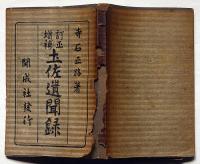 寺石正路著
訂正
增補
土佐遺聞録
開成社發行